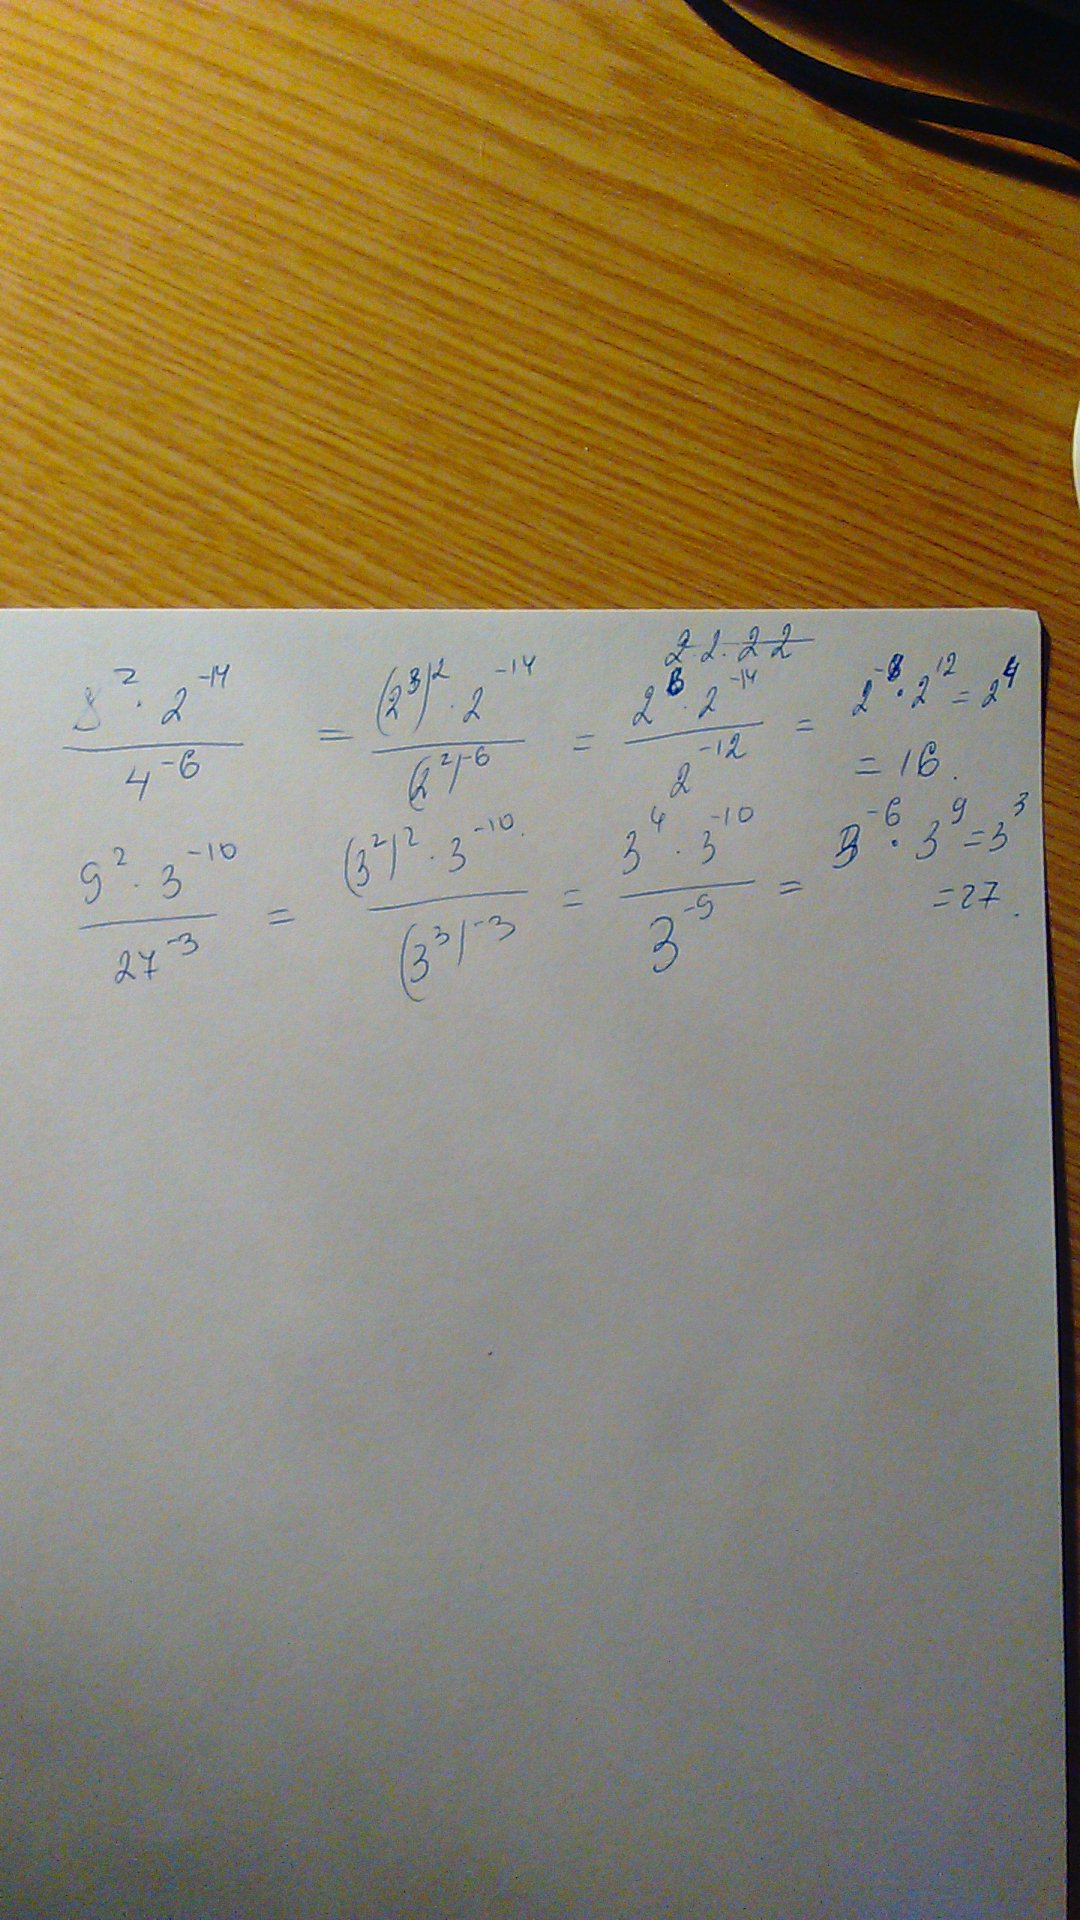 2·2·2 2
8² · 2⁻¹⁴ / 4⁻⁶ = (2³)² · 2⁻¹⁴ / (2²)⁻⁶ = 2⁶ · 2⁻¹⁴ / 2⁻¹² = 2⁻⁸ · 2¹² = 2⁴
= 16.
9² · 3⁻¹⁰ / 27⁻³ = (3²)² · 3⁻¹⁰ / (3³)⁻³ = 3⁴ · 3⁻¹⁰ / 3⁻⁹ = 3⁻⁶ · 3⁹ = 3³
= 27.